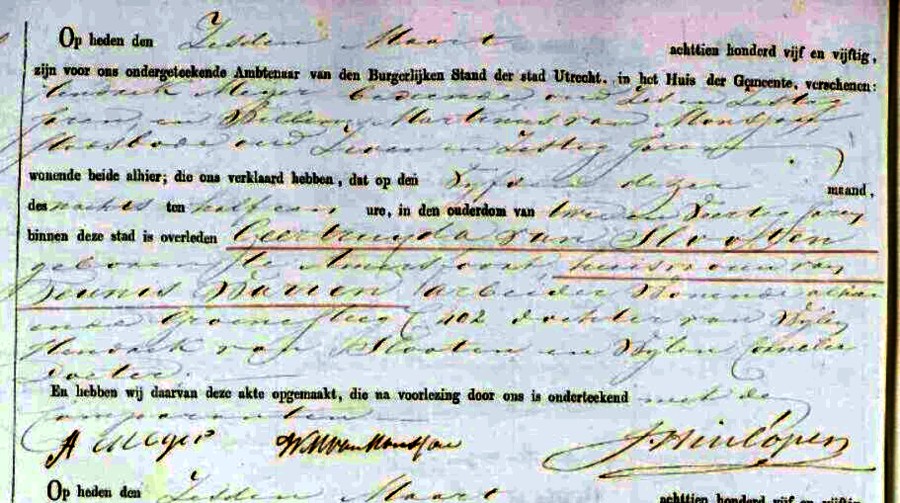 Op heden den Zesden Maart achttien honderd vijf en vijftig,
zijn voor ons ondergeteekende Ambtenaar van den Burgerlijken Stand der stad Utrecht, in het Huis der Gemeente, verschenen:
Hendrik Meijer bediende oud Zes en Zestig
Jaren en Willem Martinus van
oud Zeven en Zestig Jaren
wonende beide alhier; die ons verklaard hebben, dat op den Vyfden dezer maand,
des nachts ten half een ure, in den ouderdom van twee en Veertig Jaren
binnen deze stad is overleden Geertruyda van Slooten
geboren te Amersfoort, huisvrouw van
Teunis arbeider Wonende alhier
in de Groenesteeg C 402 dochter van Wylen
Hendrik van Slooten en Wylen Cornelia
En hebben wij daarvan deze akte opgemaakt, die na voorlezing door ons is onderteekend met de
comparanten
Op heden den Zesden Maart achttien honderd vijf en vijftig,